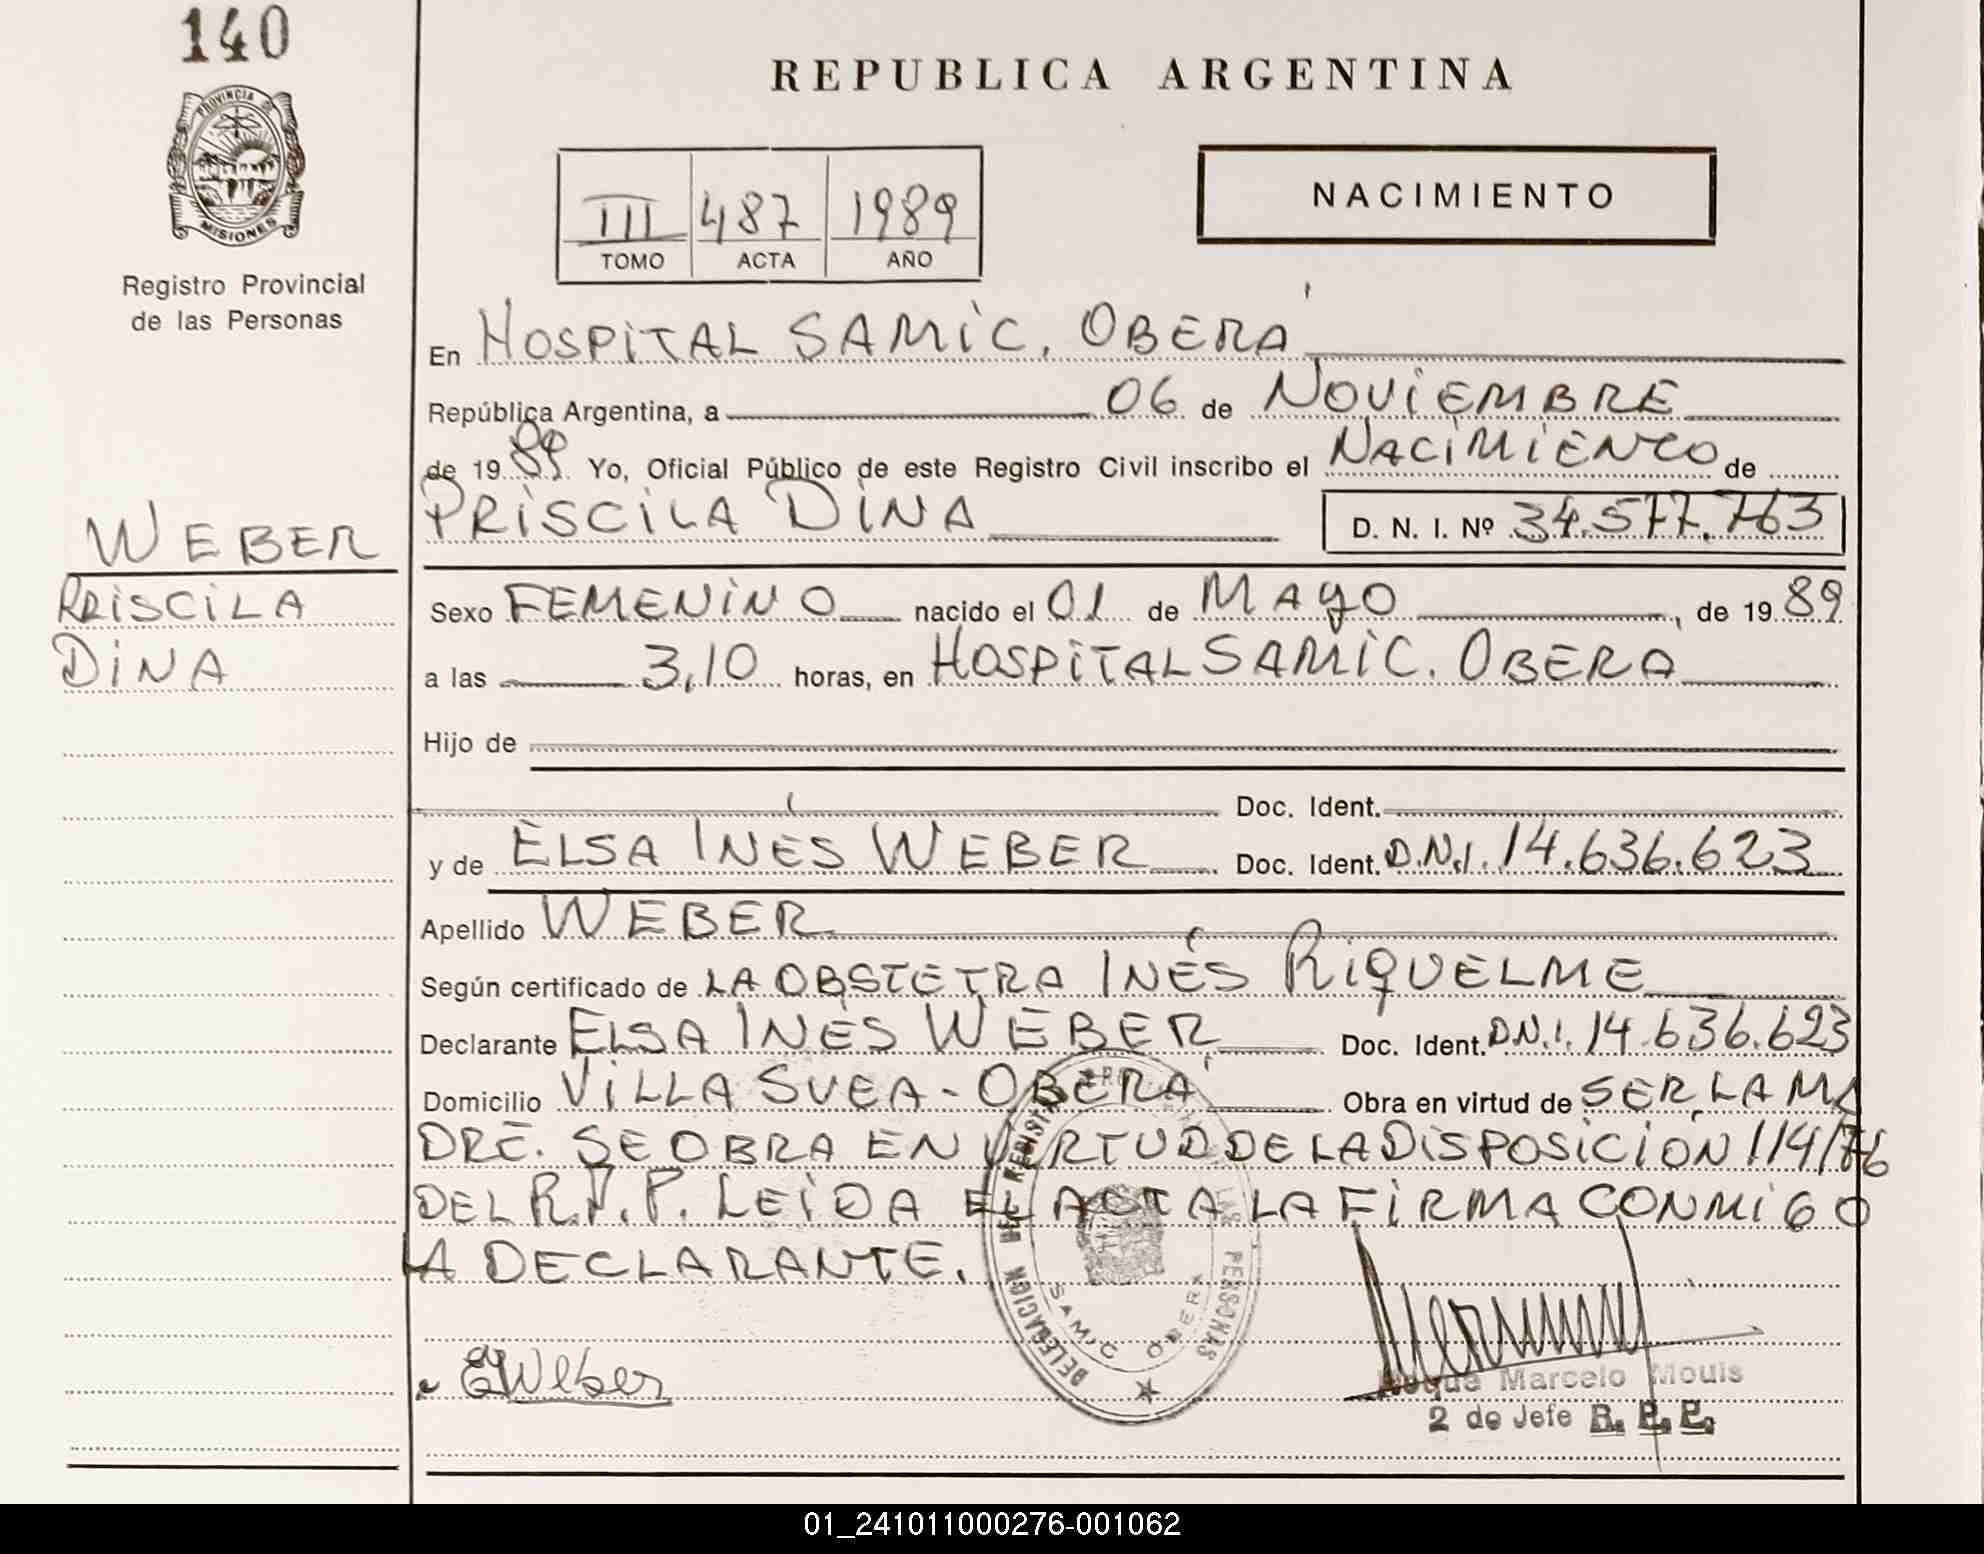 140
REPUBLICA ARGENTINA
PROVINCIA DE
MISIONES
NACIMIENTO
III 487 1989
TOMO ACTA AÑO
Registro Provincial
de las Personas
En HOSPITAL SAMIC. OBERÁ
República Argentina, a 06 de NOVIEMBRE
de 1989 Yo, Oficial Público de este Registro Civil inscribo el NACIMIENTO de
PRISCILA DINA D. N. I. Nº 34.577.763
WEBER
PRISCILA
DINA
Sexo FEMENINO nacido el 01 de MAYO, de 1989
a las 3,10 horas, en HOSPITAL SAMIC. OBERA
Hijo de
Doc. Ident.
y de ELSA INÉS WEBER Doc. Ident. D.N.I. 14.636.623
Apellido WEBER
Según certificado de LA OBSTETRA INÉS RIQUELME
Declarante ELSA INÉS WEBER Doc. Ident. D.N.I. 14.636.623
Domicilio VILLA SVEA - OBERÁ Obra en virtud de SER LA MA
DRE. SE OBRA EN VIRTUD DE LA DISPOSICIÓN 114/76
DEL R.P.P. LEIDA EL ACTA LA FIRMA CONMIGO
LA DECLARANTE.
DELEGACION DEL REGISTRO PROVINCIAL LAS PERSONAS
SAMIC OBERA
EWeber
Roque Marcelo Mouis
2 do Jefe R. P. P.
01_241011000276-001062